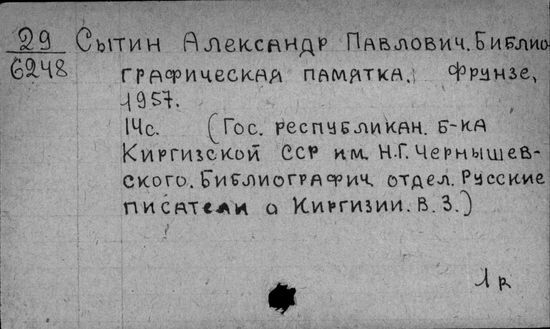 29 Сытин Александр Павлович. Библио
6248 графическая памятка. Фрунзе,
1957.
14с. (Гос. республикан. б-ка
Киргизской ССР им. Н.Г. Чернышев-
ского. Библиографич. отдел. Русские
писатели о Киргизии. В. 3.)
1 к